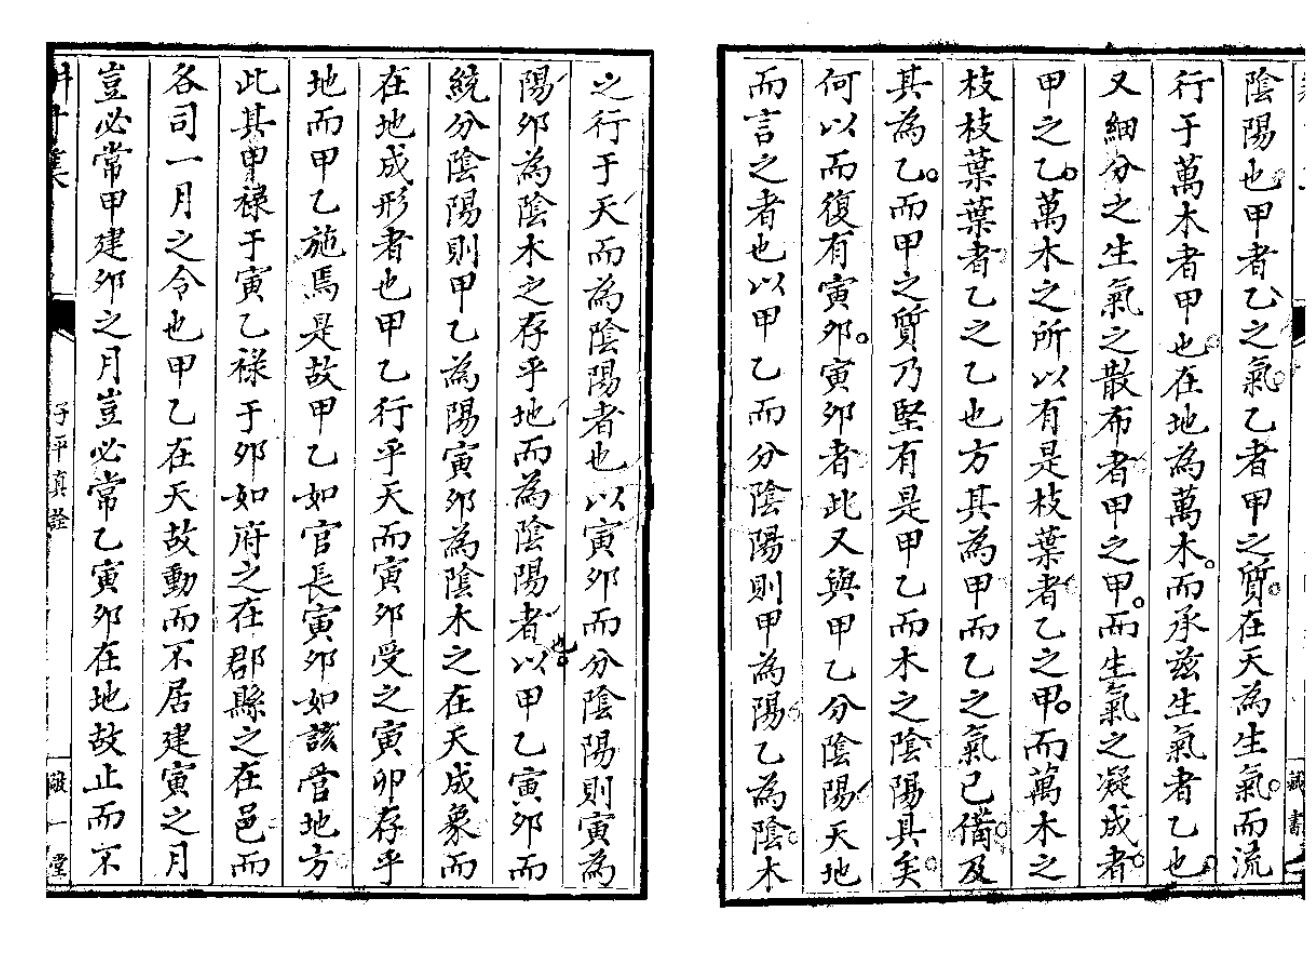 陰陽也甲者乙之氣乙者甲之質在天為生氣而流
行于萬木者甲也在地為萬木而承兹生氣者乙也
又細分之生氣之散布者甲之甲而生氣之凝成者
甲之乙萬木之所以有是枝葉者乙之甲而萬木之
枝枝葉葉者乙之乙也方其為甲而乙之氣已備及
其為乙而甲之質乃堅有是甲乙而木之陰陽具矣
何以而復有寅卯寅卯者此又與甲乙分陰陽天地
而言之者也以甲乙而分陰陽則甲為陽乙為陰木
之行于天而為陰陽者也以寅卯而分陰陽則寅為
陽卯為陰木之存乎地而為陰陽者也以甲乙寅卯而
統分陰陽則甲乙為陽寅卯為陰木之在天成象而
在地成形者也甲乙行乎天而寅卯受之寅卯存乎
地而甲乙施焉是故甲乙如官長寅卯如該管地方
此其甲祿于寅乙祿于卯如府之在郡縣之在邑而
各司一月之令也甲乙在天故動而不居建寅之月
豈必常甲建卯之月豈必常乙寅卯在地故止而不
子平真詮